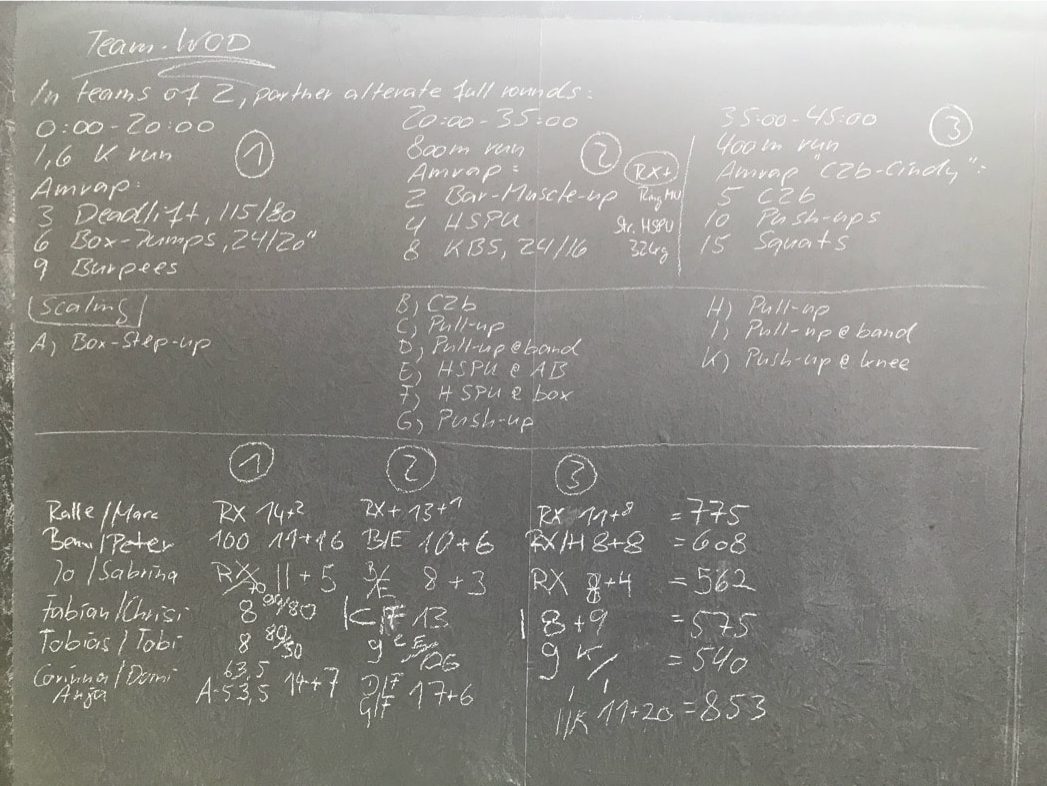 Team-WOD
In teams of 2, partner alterate full rounds:
0:00-20:00
1,6 K run
Amrap:
3 Deadlift, 115/80
6 Box-Jumps, 24/20"
9 Burpees
1
20:00-35:00
800m run
Amrap:
2 Bar-Muscle-up
4 HSPU
8 KBS, 24/16
2
RX+
Ring MU
Str. HSPU
32kg
35:00-45:00
400m run
Amrap "C2b-Cindy":
5 C2b
10 Push-ups
15 Squats
3
Scaling
A) Box-Step-up
B) C2b
C) Pull-up
D) Pull-up@band
E) HSPU @ AB
F) HSPU @ box
G) Push-up
H) Pull-up
I) Pull-up @ band
K) Push-up @ knee
1 2 3
Ralle/Marc RX 14+2 RX+ 13+1 RX 11+8 =775
/Peter 100 11+16 B/E 10+6 RX/H 8+8 =608
Jo/Sabrina RX/70 11+5 B/E 8+3 RX 8+4 =562
Fabian/Chrisi 8 /80 C/F 13 I 8+9 =575
Tobias/Tobi 8 80/50 9 9 K/ =540
Corinna/Domi 63,5
Anja A-53,5 14+7 D/F G/F 17+6 I/K 11+20 =853